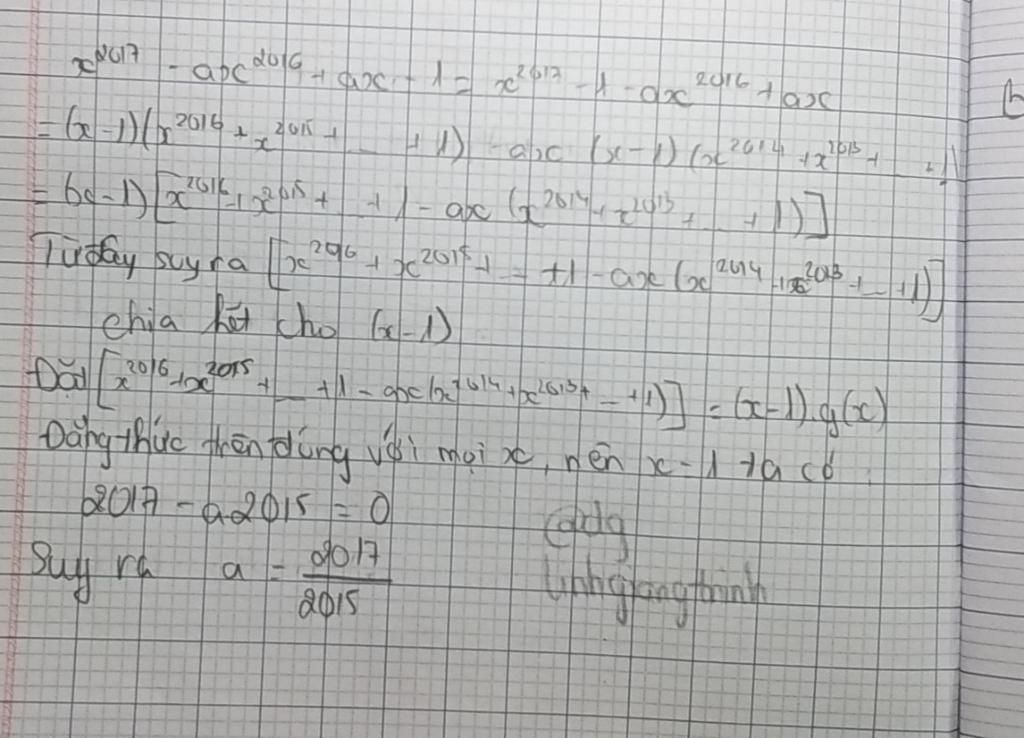 x^2017 - ax^2016 + ax - 1 = x^2017 - 1 - ax^2016 + ax
= (x-1)(x^2016 + x^2015 + ... + 1) - ax (x-1)(x^2014 + x^2013 + ... + 1)
= (x-1)[x^2016 + x^2015 + ... + 1 - ax (x^2014 + x^2013 + ... + 1)]
Từ đây suy ra [x^2016 + x^2015 + ... + 1 - ax (x^2014 + x^2013 + ... + 1)]
chia hết cho (x-1)
Đặt [x^2016 + x^2015 + ... + 1 - ax (x^2014 + x^2013 + ... + 1)] = (x-1).g(x)
Đẳng thức trên đúng với mọi x, nên x = 1 ta có
2017 - a.2015 = 0
Suy ra a = 2017/2015
linhgiangthinh